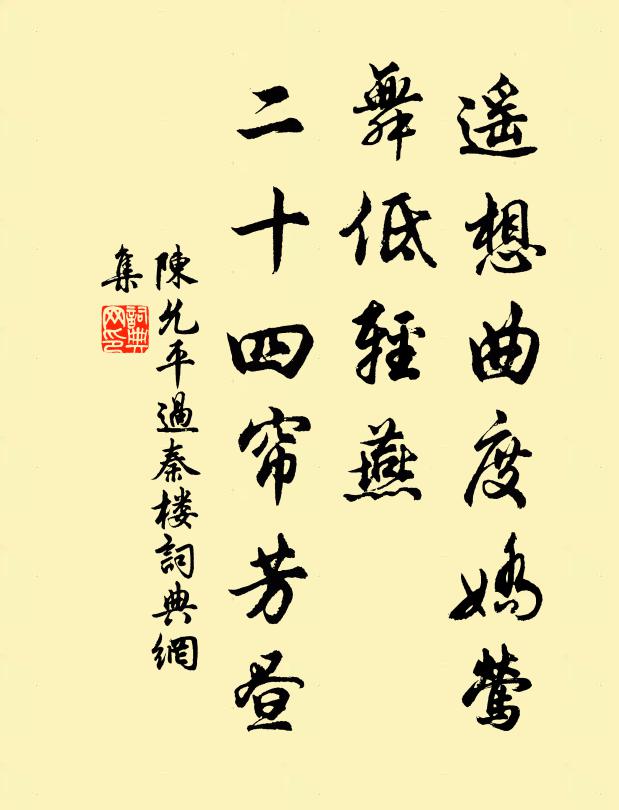 遥想曲度娇莺
舞低輕燕
二十四帘芳昼
陳允平過秦楼詞典網
集
詞典网印